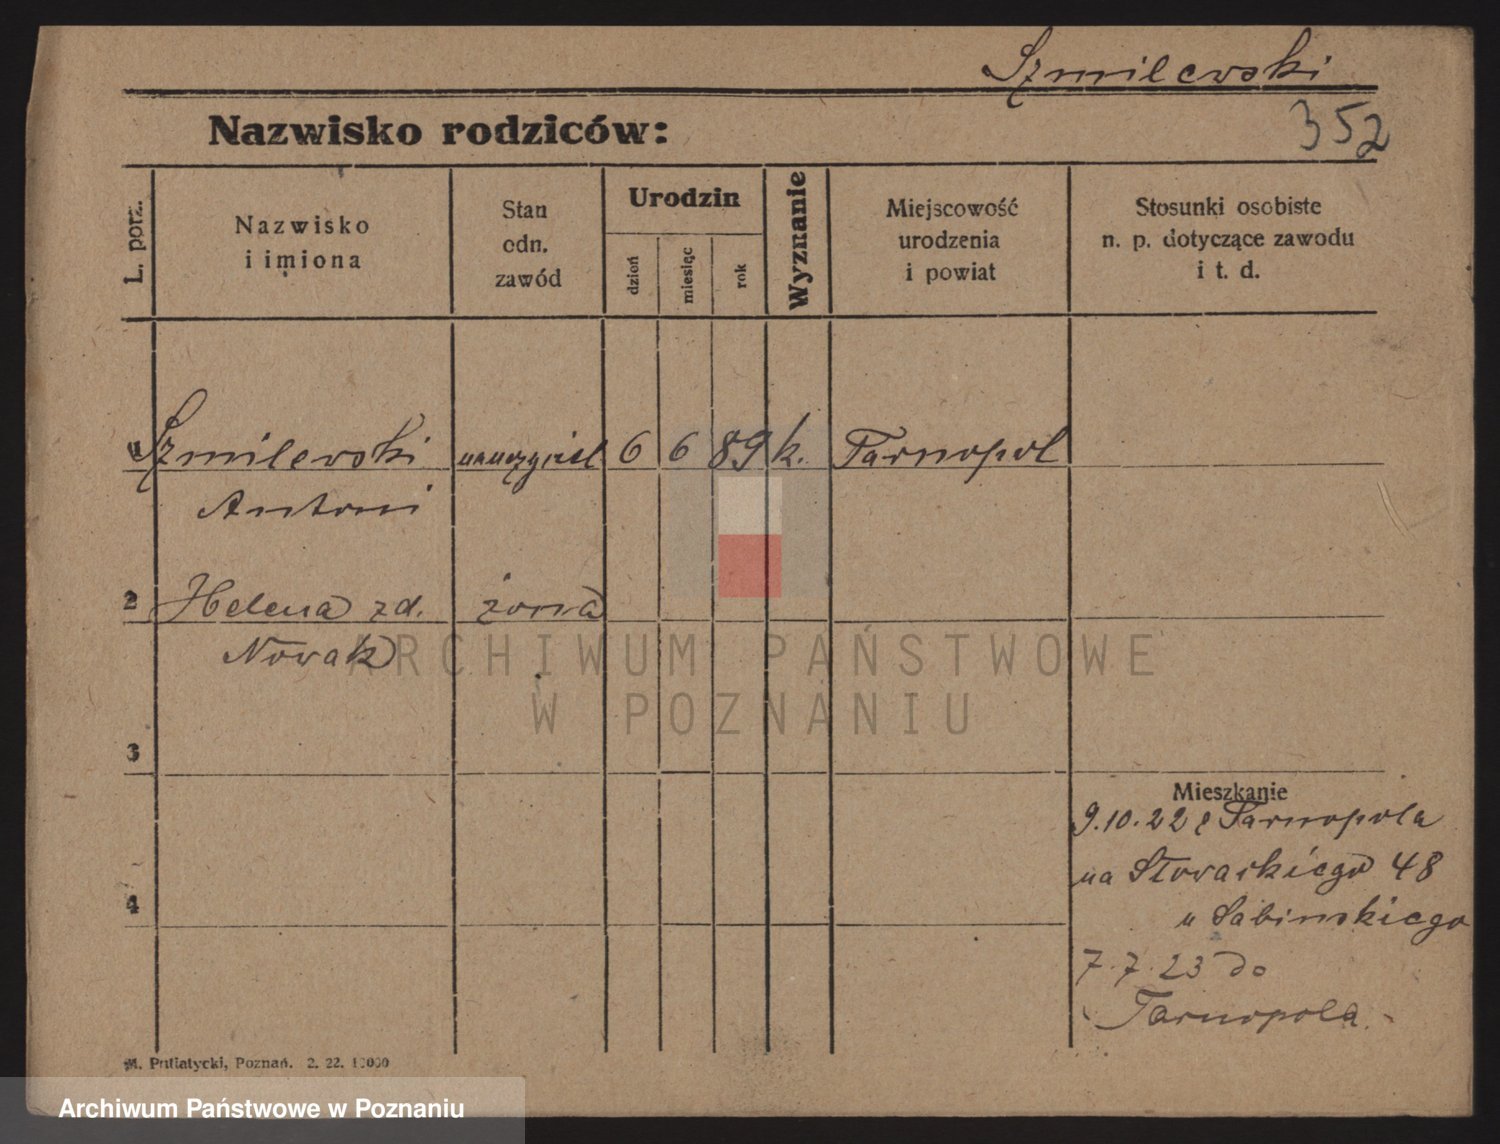 Szmilewski
Nazwisko rodziców:
352
L. porz.
Nazwisko
i imiona
Stan
odn.
zawód
Urodzin
dzień
miesiąc
rok
Wyznanie
Miejscowość
urodzenia
i powiat
Stosunki osobiste
n. p. dotyczące zawodu
i t. d.
1 Szmilewski nauczyciel 6 6 89 k. Tarnopol
Antoni
2 Helena zd. żona
Nowak
ARCHIWUM PAŃSTWOWE
W POZNANIU
3
Mieszkanie
9.10.22 z Tarnopola
na Słowackiego 48
4
u Sabinskiego
7.7.23 do
Tarnopola.
M. Putiatycki, Poznań. 2. 22. 10000
Archiwum Państwowe w Poznaniu